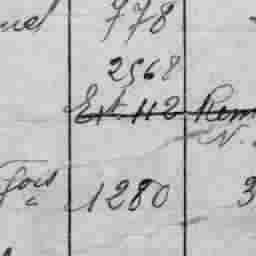 778
2568
Ext. 112 Rem
N.
fois 1280 3